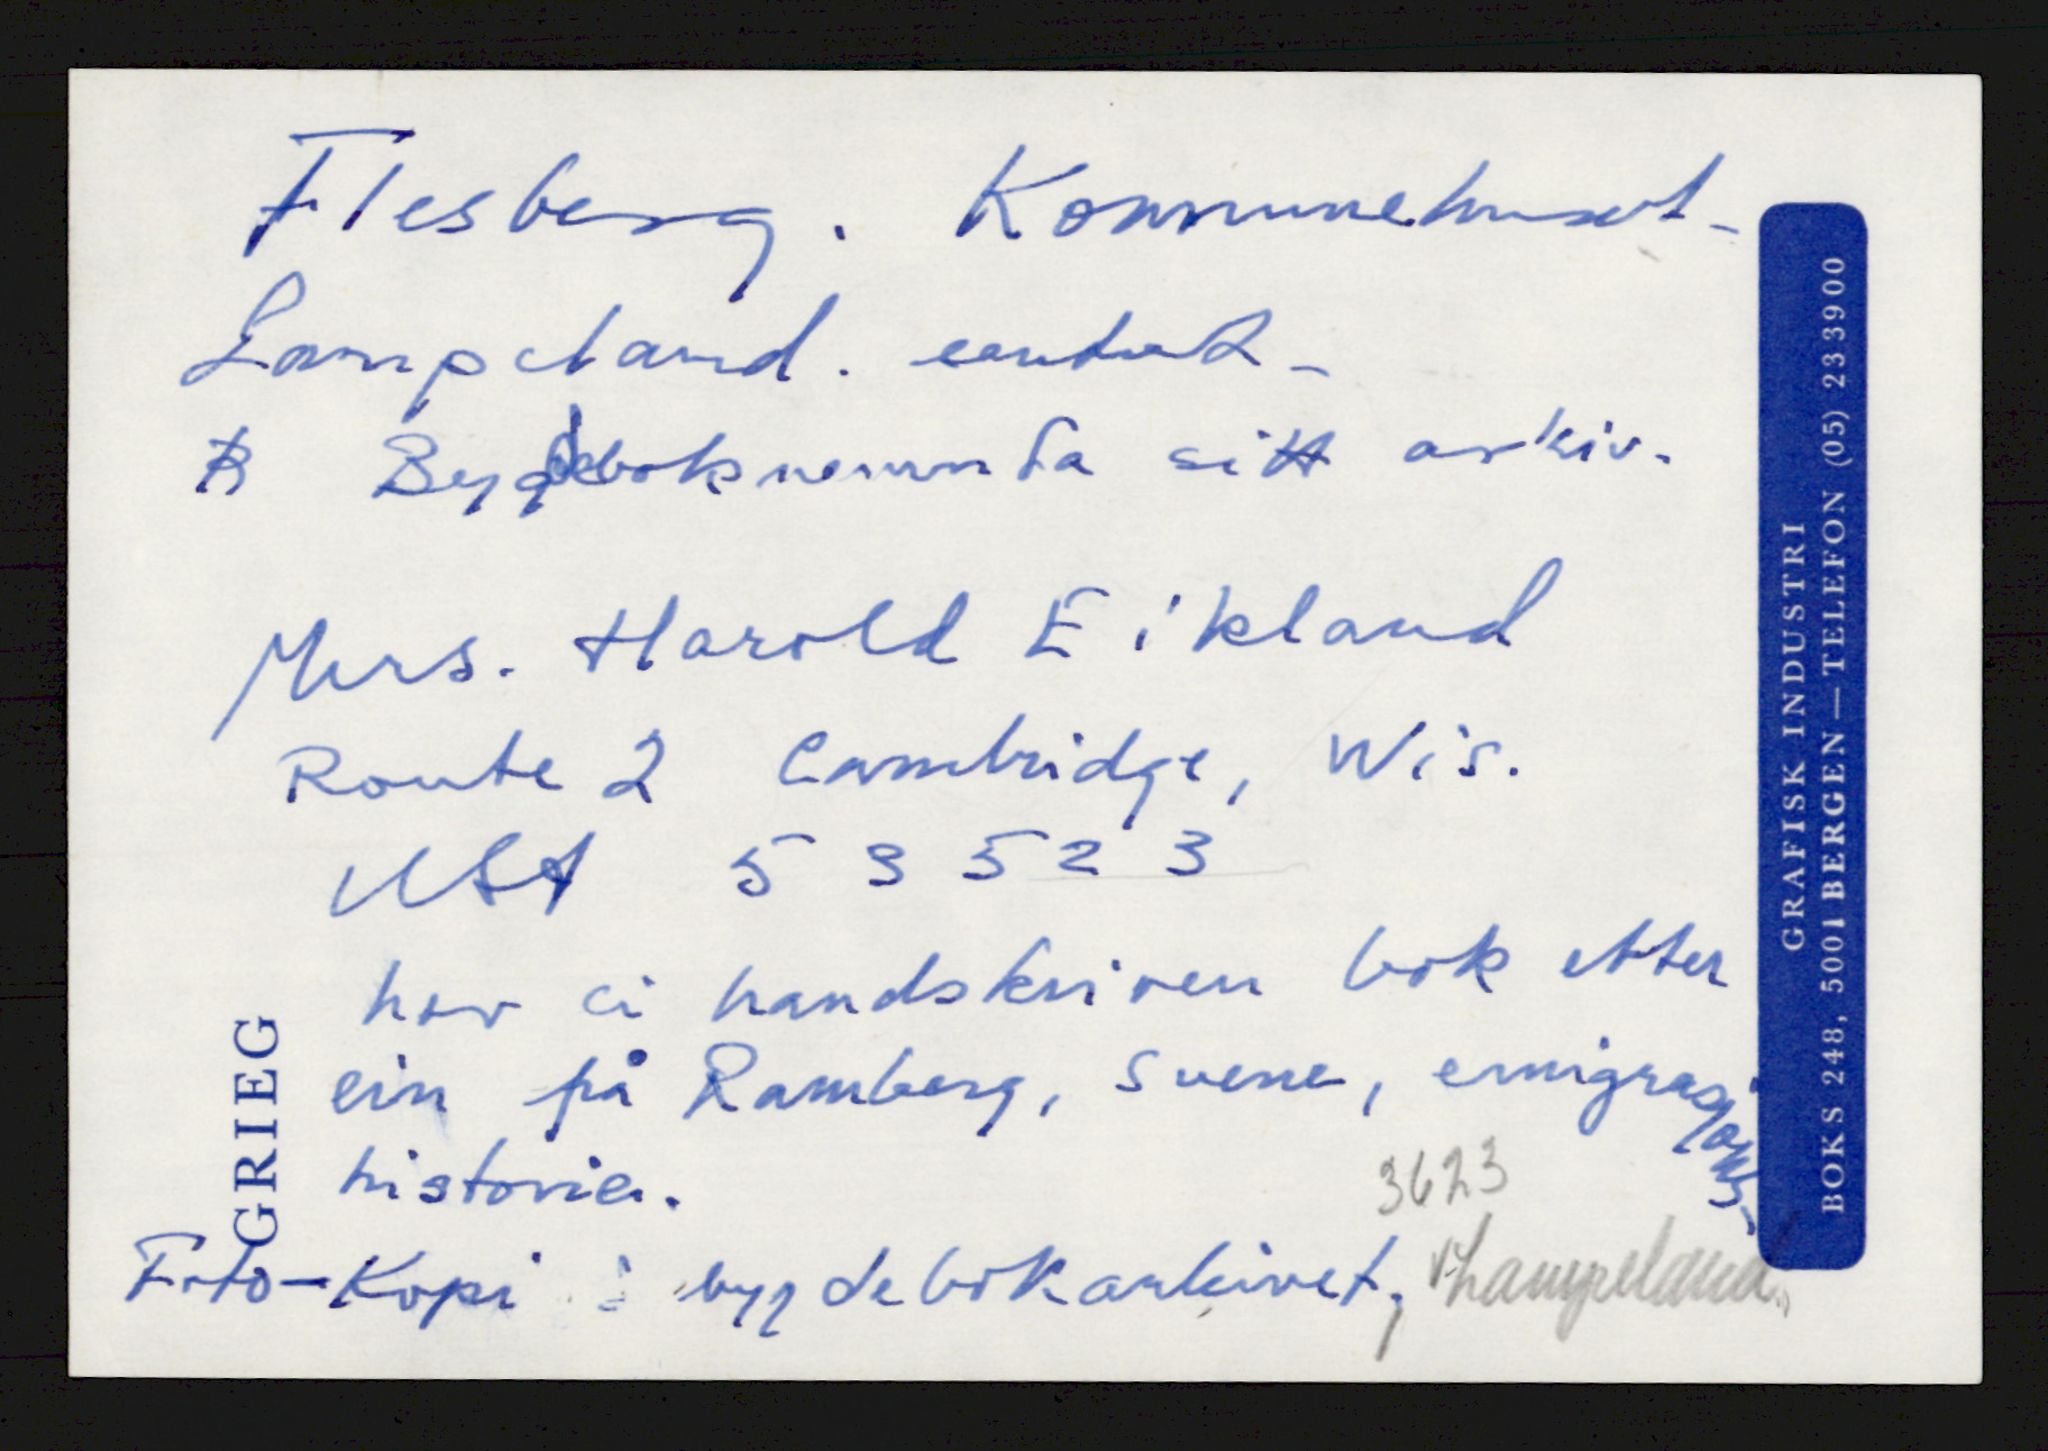 Flesberg. Kommunehuset-
Lampeland. sentralt-
B Bygdeboknemnda sitt arkiv.
Mrs. Harold Eikland
Route 2 Cambridge, Wis.
USA 53523
har ei handskriven bok etter
ein på Ramberg, Svene, emigrasjons-
historia.
3623
Foto-Kopi i bygdebokarkivet, Lampeland.
GRIEG
GRAFISK INDUSTRI
BOKS 248, 5001 BERGEN — TELEFON (05) 233900